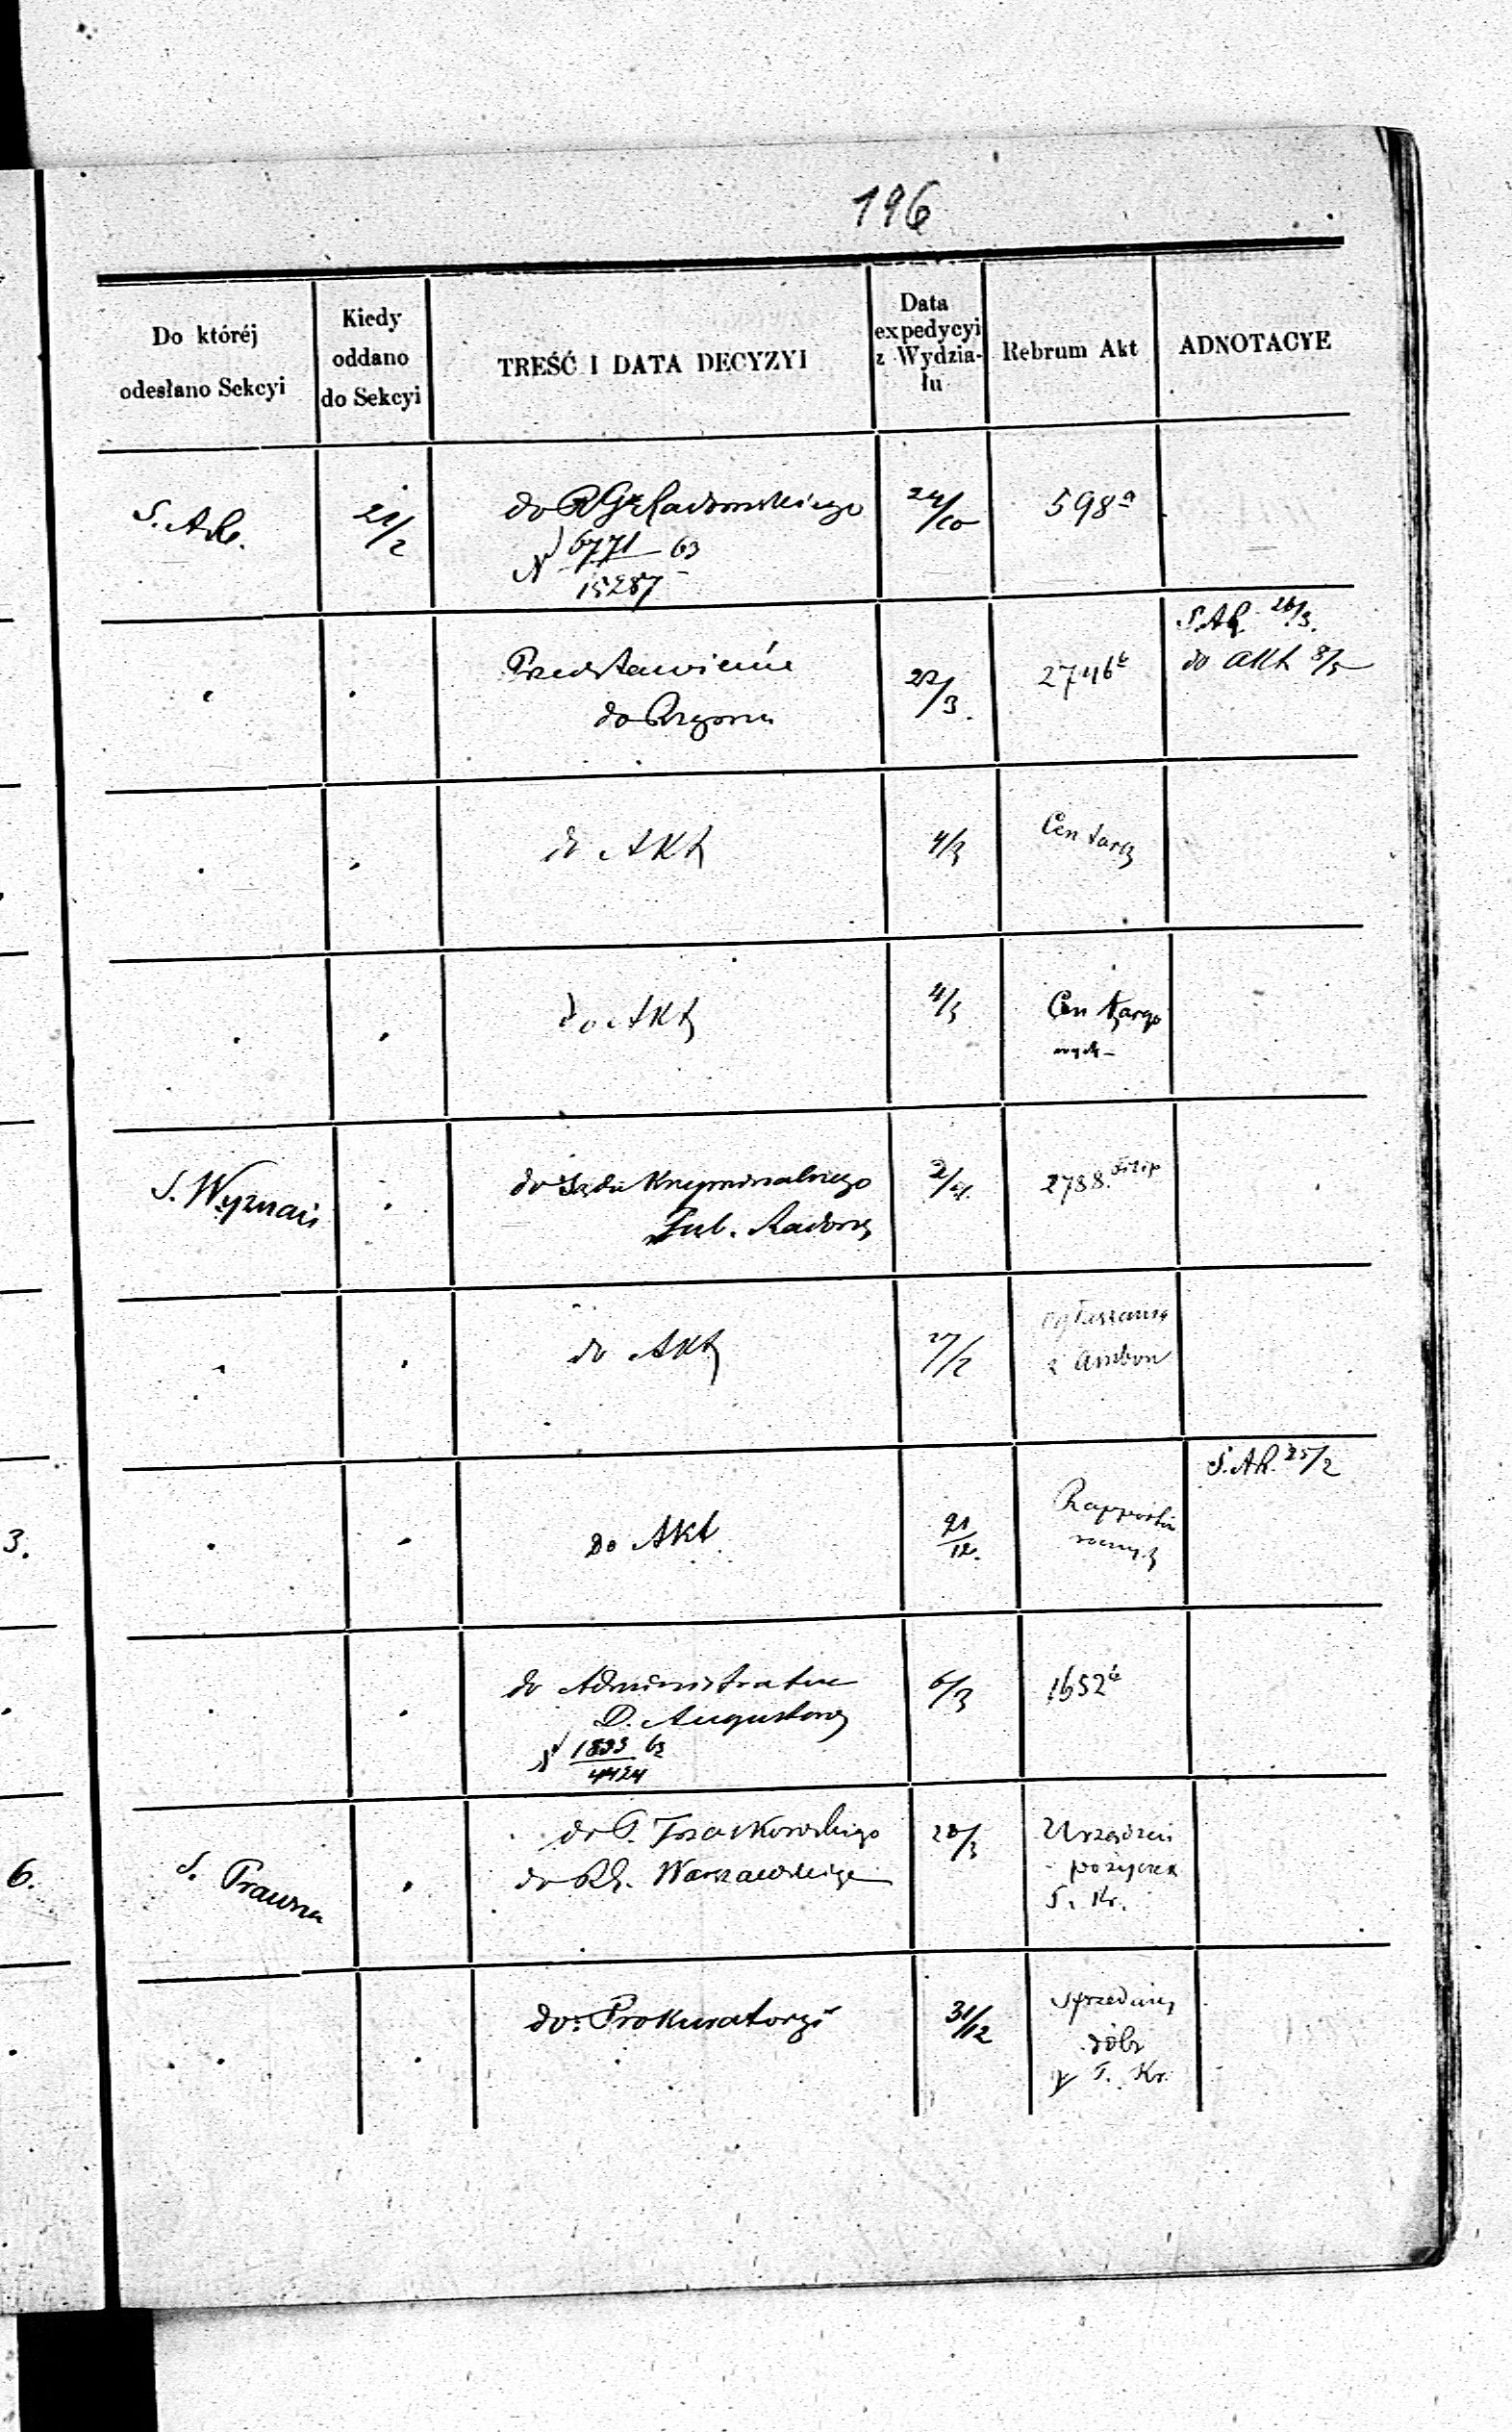 196
Do któréj
odesłano Sekcyi
Kiedy
oddano
do Sekcyi
TREŚĆ I DATA DECYZYI
Data
expedycyi
z Wydzia-
łu
Rebrum Akt
ADNOTACYE
21/2
do
N 6771 63
15287
24/10
598 a
Przedstawienie
do
22/3.
2746
do Akt 8/5
do Akt
4/3
Cen targ
do Akt
4/3
Cen targo
wych
S. Wyznań
do Sądu Kryminalnego
Gub. Radom
2/4.
2788.
do Akt
27/2
Ogłaszania
z Ambon
3.
do Akt
21/12.
Rapportów
rocznych
S. Ak. 25/2
do Administratora
D. Augustow
N 1893 63
4424
6/3
1652
6.
S. Prawna
do
do Warszawskiego
28/3
Urządzeń
pożyczek
T. Kr.
do Prokuratoryi
31/12
Sprzedaży
dóbr
T. Kr.